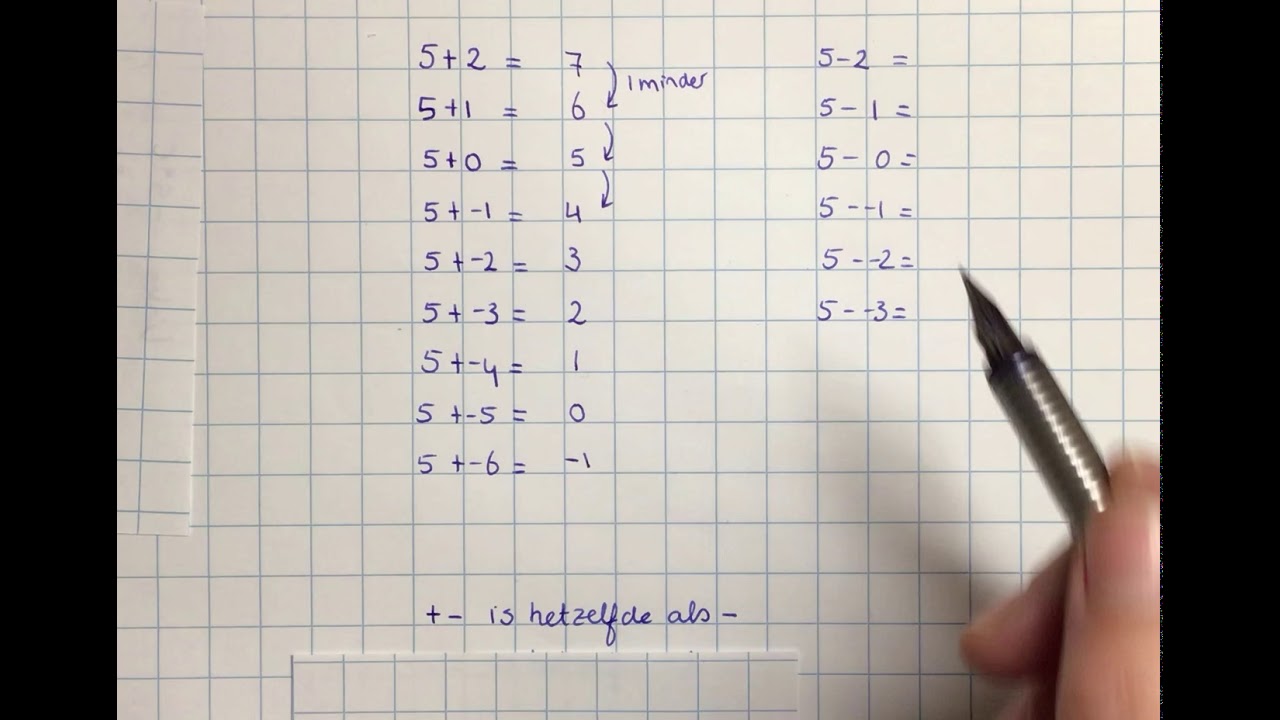 5+2 = 7
1 minder
5+1 = 6
5+0 = 5
5+-1 = 4
5+-2 = 3
5+-3 = 2
5+-4 = 1
5+-5 = 0
5+-6 = -1
5-2 =
5-1 =
5-0 =
5--1 =
5--2 =
5--3 =
+- is hetzelfde als -